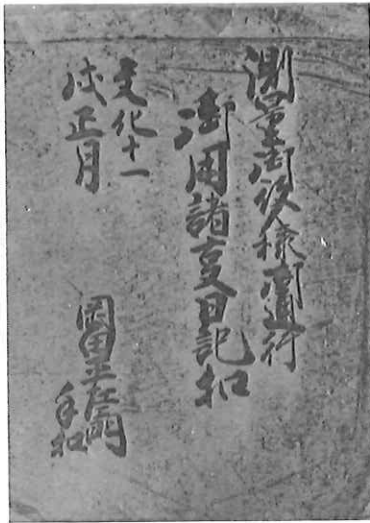 測量御役人様御通行
御用諸事日記扣
文化十一
戌正月
岡田平左衛門
手扣